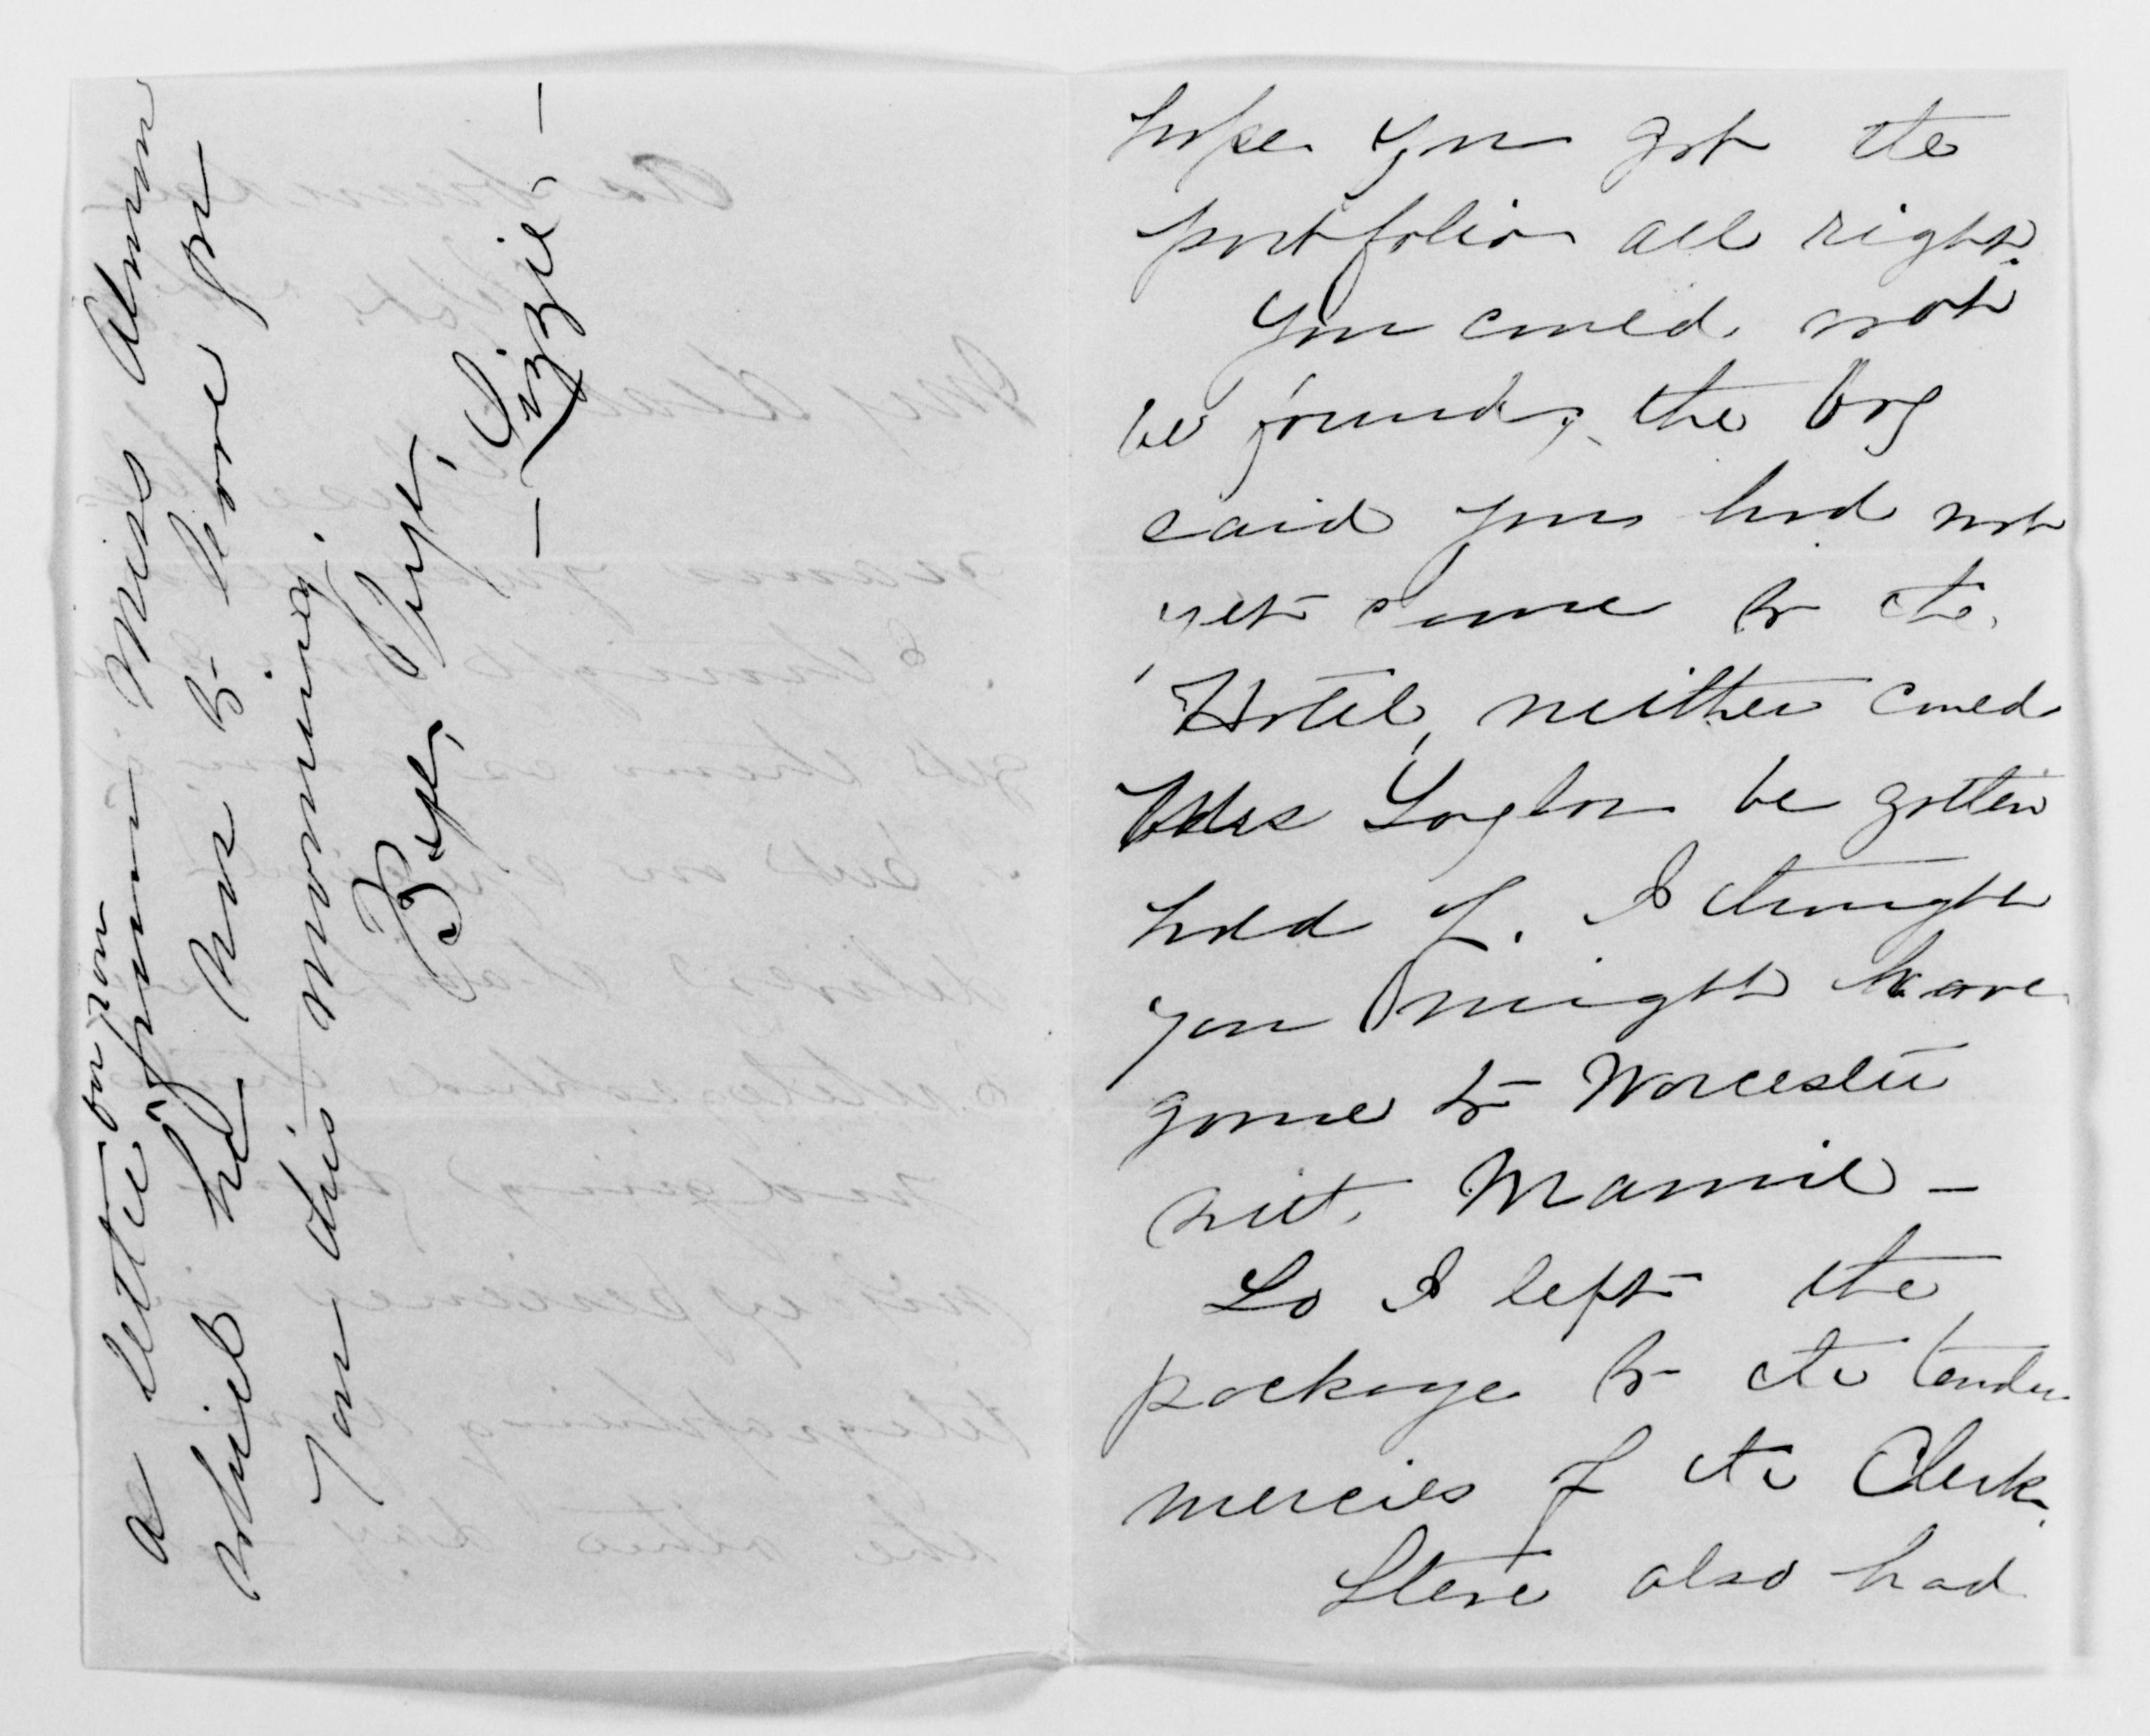 hope you got the
portfolio all right.
You could not
be found, the boy
said you had not
yet come to the
Hotel, neither could
Miss Taylor be gotten
hold of. I thought
you might have
gone to Worcester
with Mamie –
So I left the
package to the tender
mercies of the Clerk.
Steve also had
a letter for you
from Miss Alma
which he has to leave for
you this morning.
Bye, Bye,
– Lizzie –